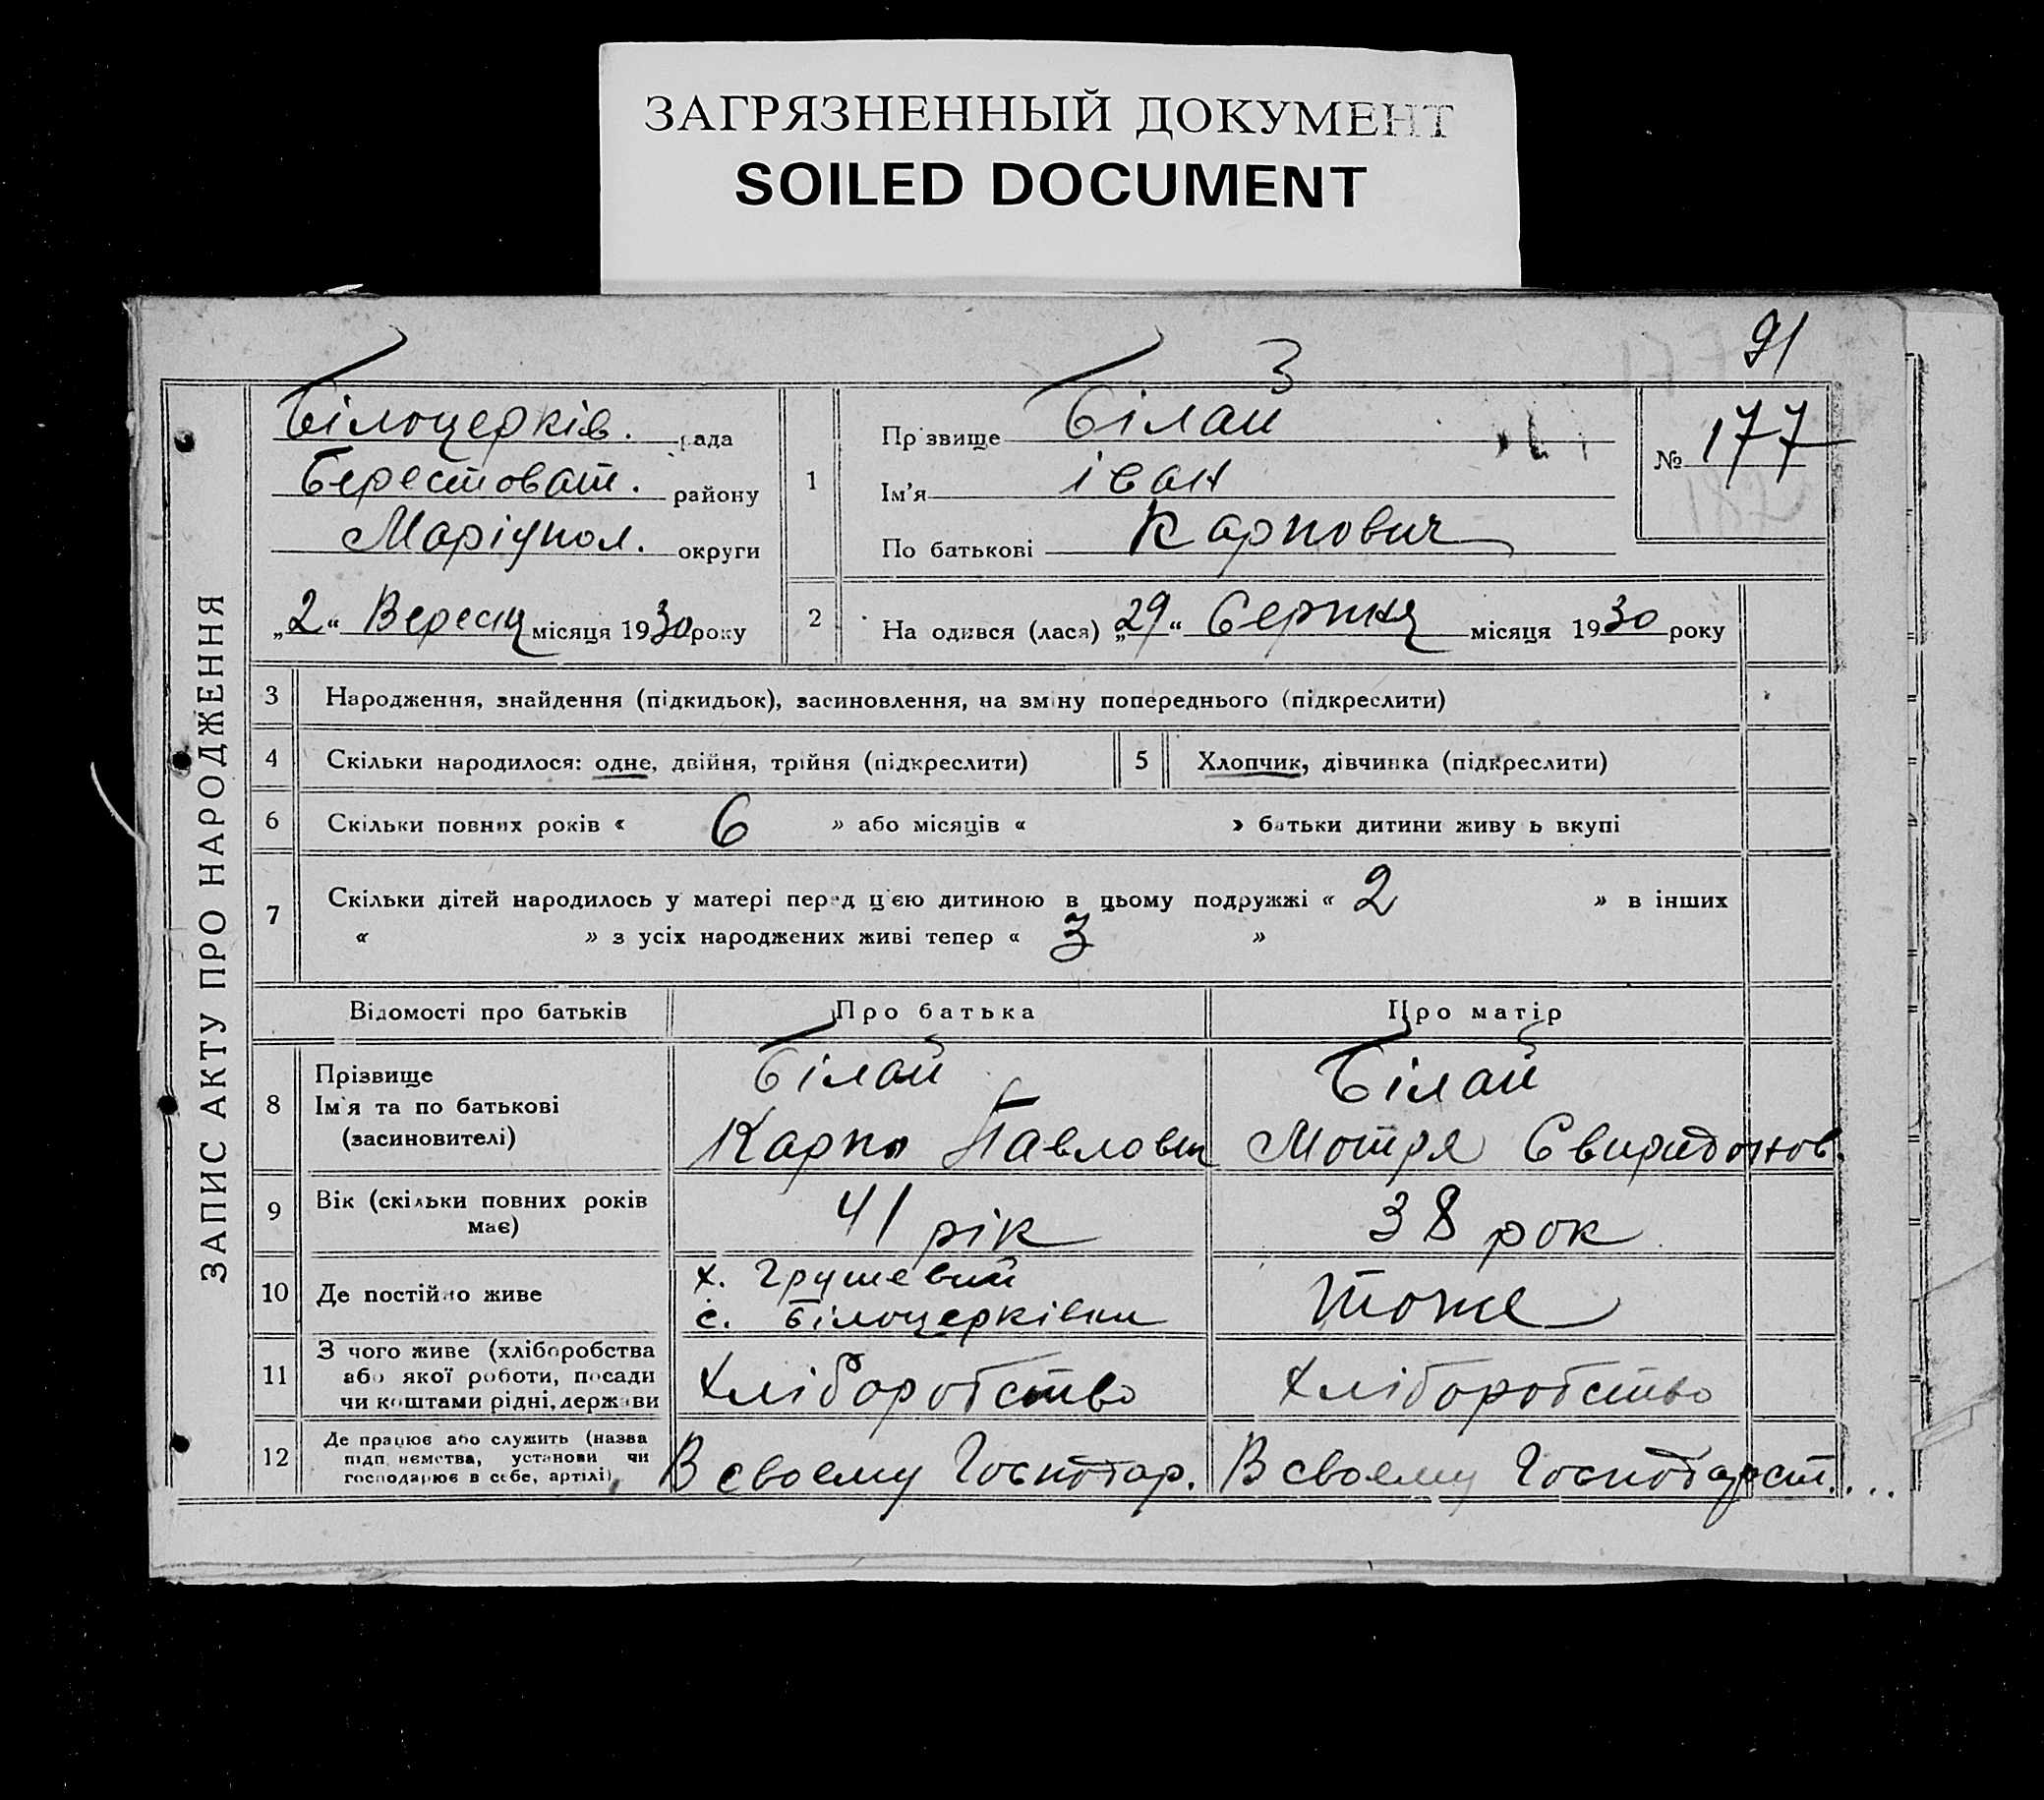 ЗАГРЯЗНЕННЫЙ ДОКУМЕНТ
SOILED DOCUMENT
91
ЗАПИС АКТУ ПРО НАРОДЖЕННЯ
Білоцерків. рада
Берестоват. району
Маріупол. округи
„2“ Вересня місяця 1930 року
1
Прізвище Білай
Ім'я іван
По батькові Карпович
№ 177
2 Народився (лася) „29“ Серпня місяця 1930 року
3 Народження, знайдення (підкидьок), засиновлення, на зміну попереднього (підкреслити)
4 Скільки народилося: одне, двійня, трійня (підкреслити) 5 Хлопчик, дівчинка (підкреслити)
6 Скільки повних років « 6 » або місяців « » батьки дитини живуть вкупі
7 Скільки дітей народилось у матері перед цією дитиною в цьому подружжі « 2 » в інших
« » з усіх народжених живі тепер « 3 »
Відомості про батьків Про батька Про матір
8 Прізвище Білай Білай
Ім'я та по батькові
(засиновителі) Карпо Павлович Мотря Свиридонов.
9 Вік (скільки повних років
має) 41 рік 38 рок
10 Де постійно живе х. Грушевий
с. Білоцерківки тоже
11 З чого живе (хліборобства
або якої роботи, посади
чи коштами рідні, держави хліборобство хліборобство
12 Де працює або служить (назва
підприємства, установи чи
господарює в себе, артілі) В своему Господар. В своему Господарст....